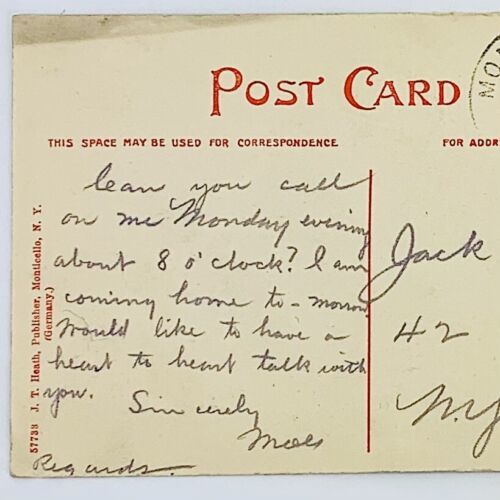 POST CARD
MON
THIS SPACE MAY BE USED FOR CORRESPONDENCE
FOR ADDR
Can you call
on me Monday evening
about 8 o'clock? I am
coming home to-morrow
Would like to have a
heart to heart talk with
you.
Sincerely
Regards.
Jack
42
N.Y
57733 J. T. Heath, Publisher, Monticello, N. Y.
(Germany.)